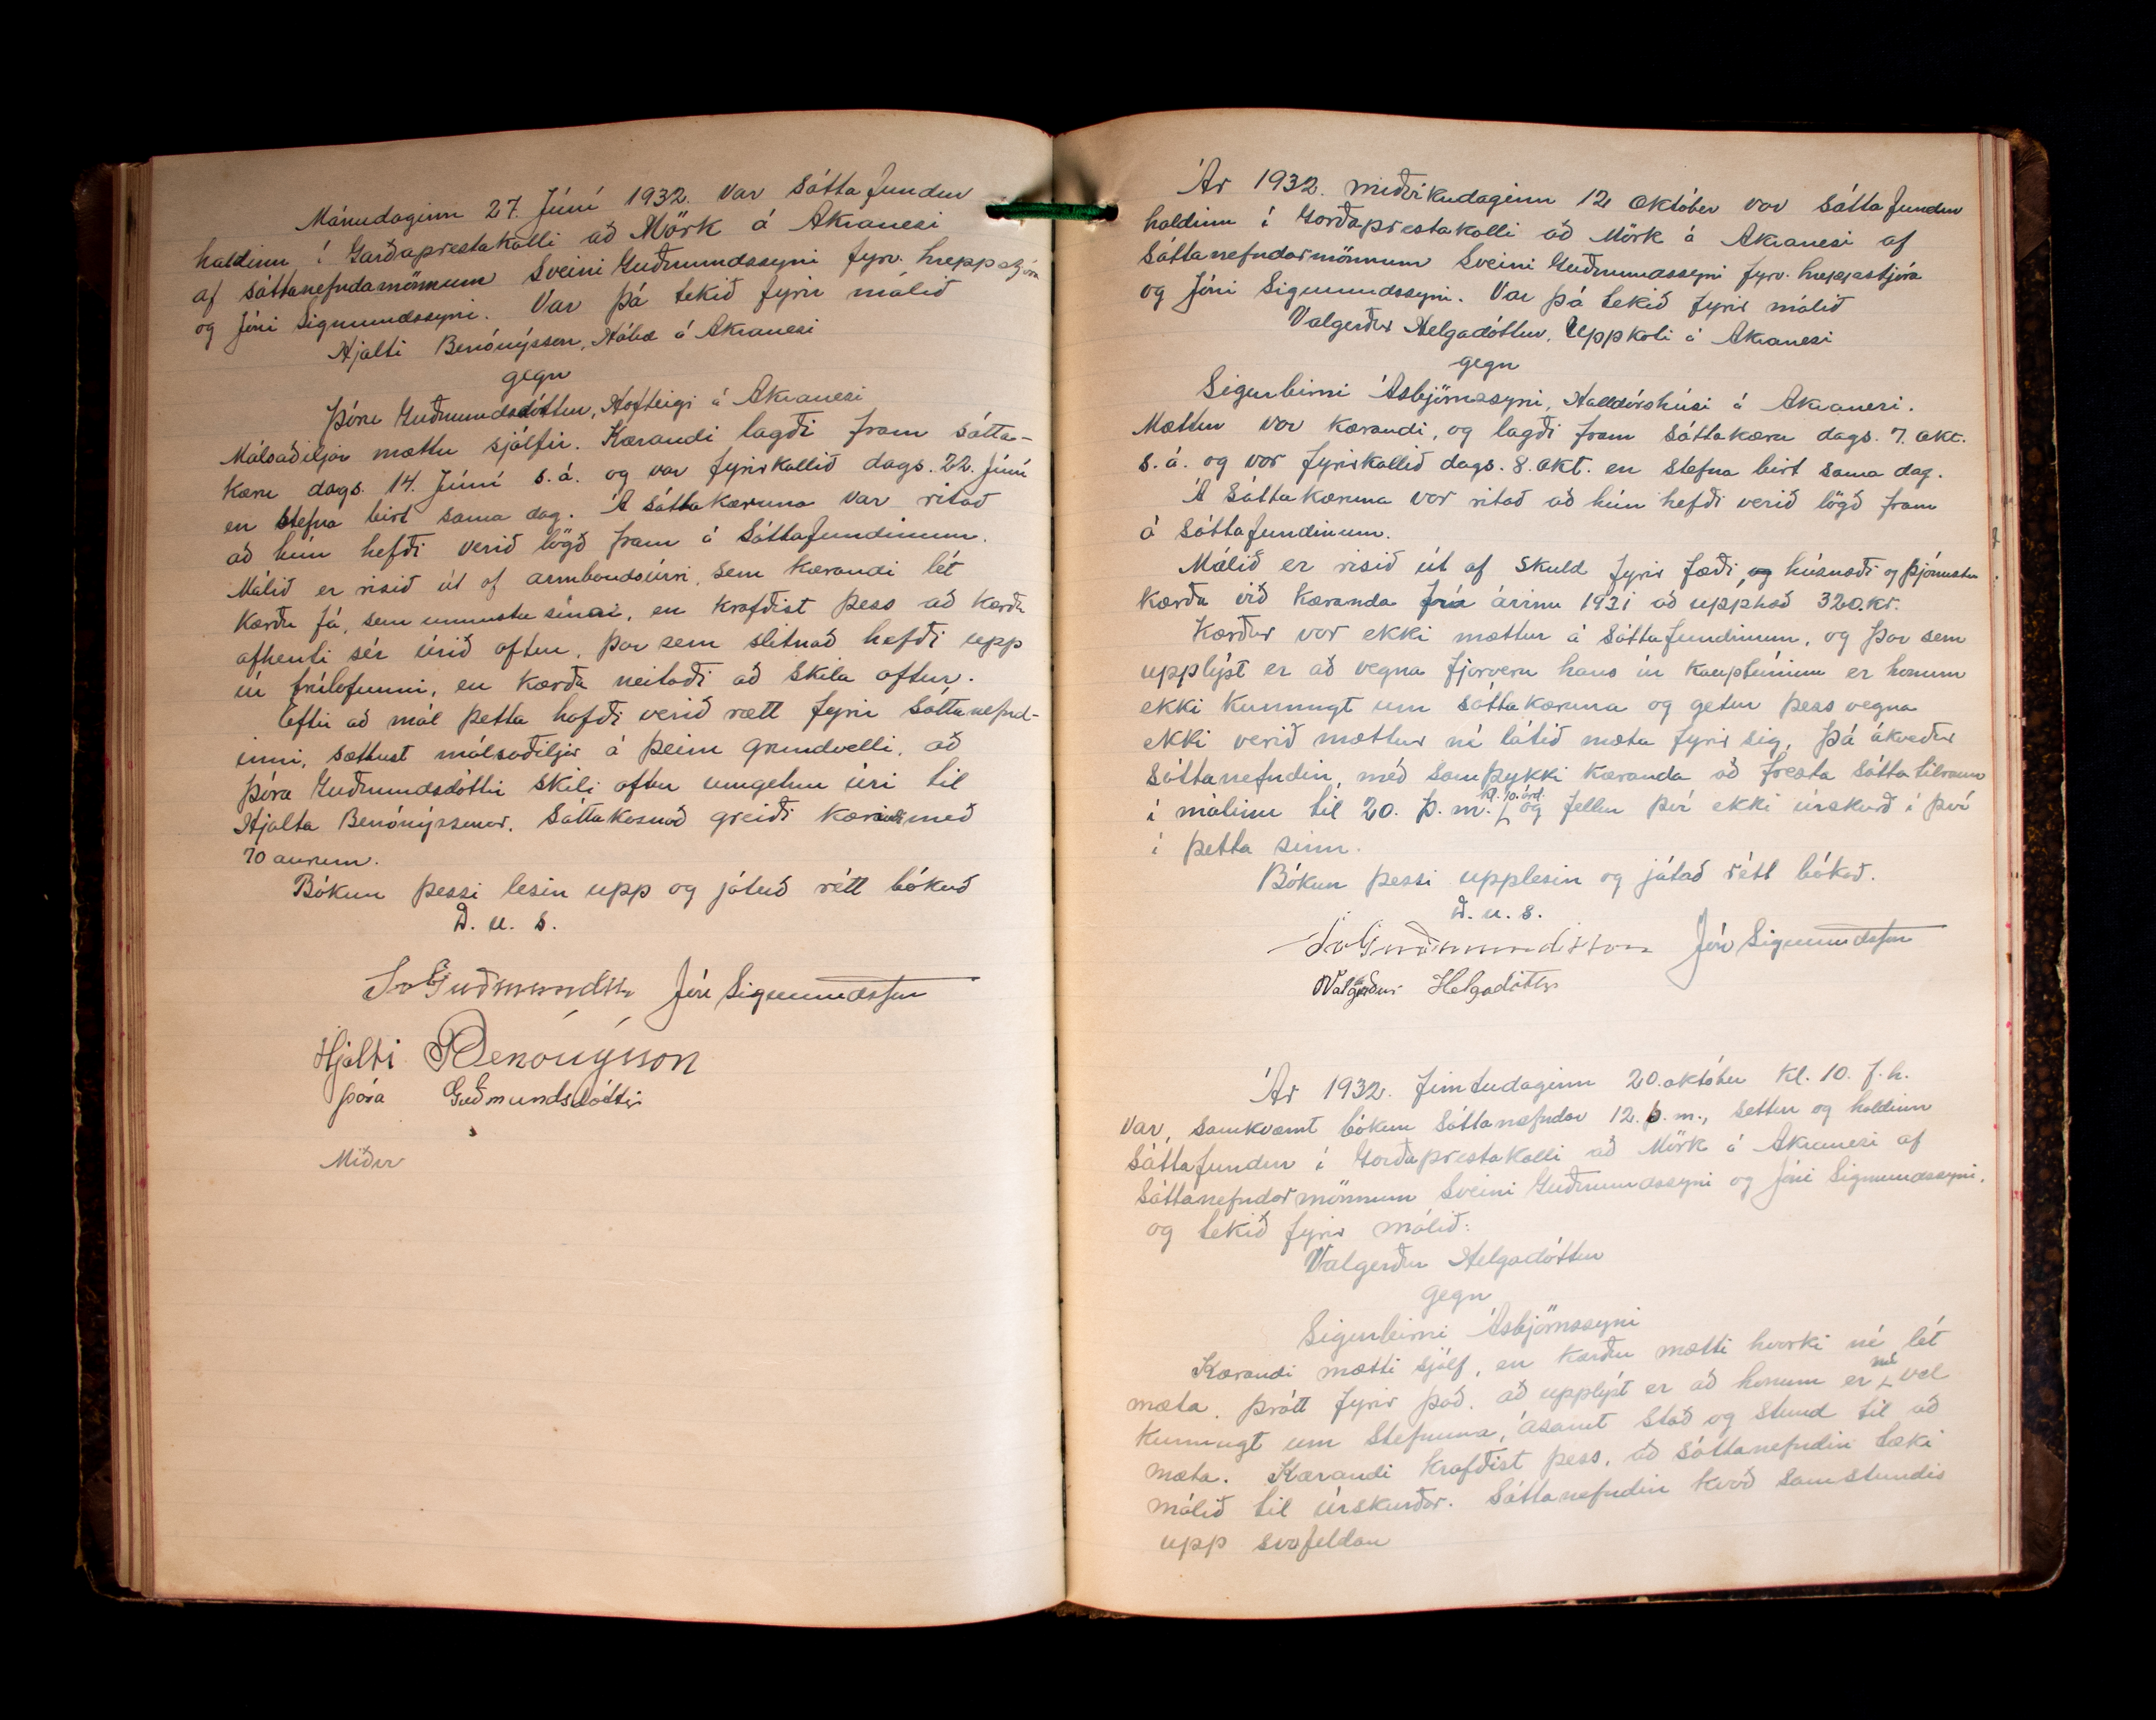 Mánudaginn 27. Júní 1932. var sáttafundur
haldinn í Garðaprestakalli að Mörk á Akranesi
af sáttanefndamönnum Sveini Guðmundssyni fyrv. hreppstjóra
og Jóni Sigmundssyni. Var þá tekið fyrir málið
Hjalti Benónýsson, á Akranesi
gegn
Þóru Guðmundsdóttur, Hofteigi á Akranesi
Málsaðiljar mættu sjálfir. Kærandi lagði fram sátta-
kæru dags. 14. Júní s.á. og var fyrirkallið dags. 22. Júní
en stefna birt sama dag. Á sáttakæruna var ritað
að hún hefði verið lögð fram á sáttafundinum.
Málið er risið út af armbandsúri, sem kærandi lét
kærðu fá, sem unnustu sinni, en krafðist þess að kærða
afhenti sér úrið aftur, þar sem slitnað hefði upp
úr trúlofunni, en kærða neitaði að skila aftur.
Eftir að mál þetta hafði verið rætt fyrir sáttanefnd-
inni, sættust málsaðiljar á þeim grundvelli, að
Þóra Guðmundsdóttir skili aftur umgetnu úri til
Hjalta Benónýssonar. Sáttakosnað greiði kærandi með
70 aurum.
Bókun þessi lesin upp og játuð rétt bókuð
D. u. s.
Sv Guðmundss Jón Sigmundsson
Hjalti Benónýsson
Þóra Guðmundsdóttir
Miðvr
Ár 1932. miðvikudaginn 12 október var sáttafundur
haldinn í Garðaprestakalli að Mörk á Akranesi af
Sáttanefndarmönnum Sveini Guðmundssyni fyrv. hreppstjóra
og Jóni Sigmundssyni. Var þá tekið fyrir málið
Valgerður Helgadóttur, Uppkoti á Akranesi
gegn
Sigurbirni Ásbjörnssyni, Halldórshúsi á Akranesi.
Mættur var kærandi, og lagði fram sáttakæru dags. 7. okt.
s.á. og var fyrirkallið dags. 8. okt. en stefna birt sama dag.
Á sáttakæruna var ritað að hún hefði verið lögð fram
á sáttafundinum.
Málið er risið út af skuld fyrir fæði, og húsnæði og þjónustu
kærða við kæranda frá árinu 1931 að upphæð 320.kr.
Kærður var ekki mættur á sáttafundinum, og þar sem
upplýst er að vegna fjarveru hans úr kauptúninu er honum
ekki kunnugt um sáttakæruna og getur þess vegna
ekki verið mættur né látið mæta fyrir sig, þá ákveður
sáttanefndin, með samþykki kæranda að fresta sáttatilraun
í málinu til 20. þ.m. kl. 10. árd. og fellur því ekki úrskurð í því
í þetta sinn.
Bókun þessi upplesin og játað rétt bókað.
D. u. s.
Sv Guðmundsson Jón Sigmundsson
Valgerður Helgadóttir
Ár 1932. fimtudaginn 20. október kl. 10. f.h.
var, samkvæmt bókun sáttanefndar 12. þ.m., settur og haldinn
sáttafundur í Garðaprestakalli að Mörk á Akranesi af
Sáttanefndarmönnum Sveini Guðmundssyni og Jóni Sigmundssyni,
og tekið fyrir málið:
Valgerður Helgadóttur
gegn
Sigurbirni Ásbjörnssyni
Kærandi mætti sjálf, en kærður mætti hvorki né lét
mæta, þrátt fyrir það, að upplýst er að honum er nú vel
kunnugt um stefnuna, ásamt stað og stund til að
mæta. Kærandi krafðist þess, að sáttanefndin tæki
málið til úrskurðar. Sáttanefndin kvað samstundis
upp svofeldan